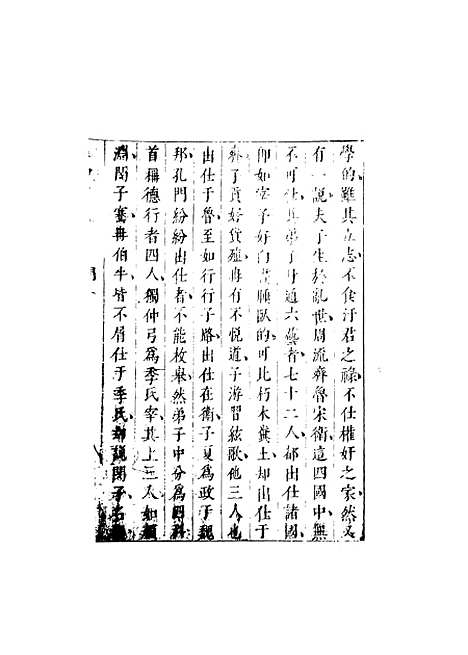 學的難其立志不食汙君之祿不仕權奸之家然又
有一說夫子生於亂世周流齊魯宋衛這四國中無
不可仕其弟子身通六藝者七十二人都出仕諸國
卽如宰予好白晝睡臥的可比朽木糞土却出仕于
齊子貢好貨殖冉有不悅道子游習絃歌他三人也
出仕于魯至如行行子路出仕在衛子夏爲政于魏
邦孔門紛紛出仕者不能枚舉然弟子中分爲四科
首稱德行者四人獨仲弓爲季氏宰其上三人如顏
淵閔子騫冉伯牛皆不屑仕于季氏却說閔子名